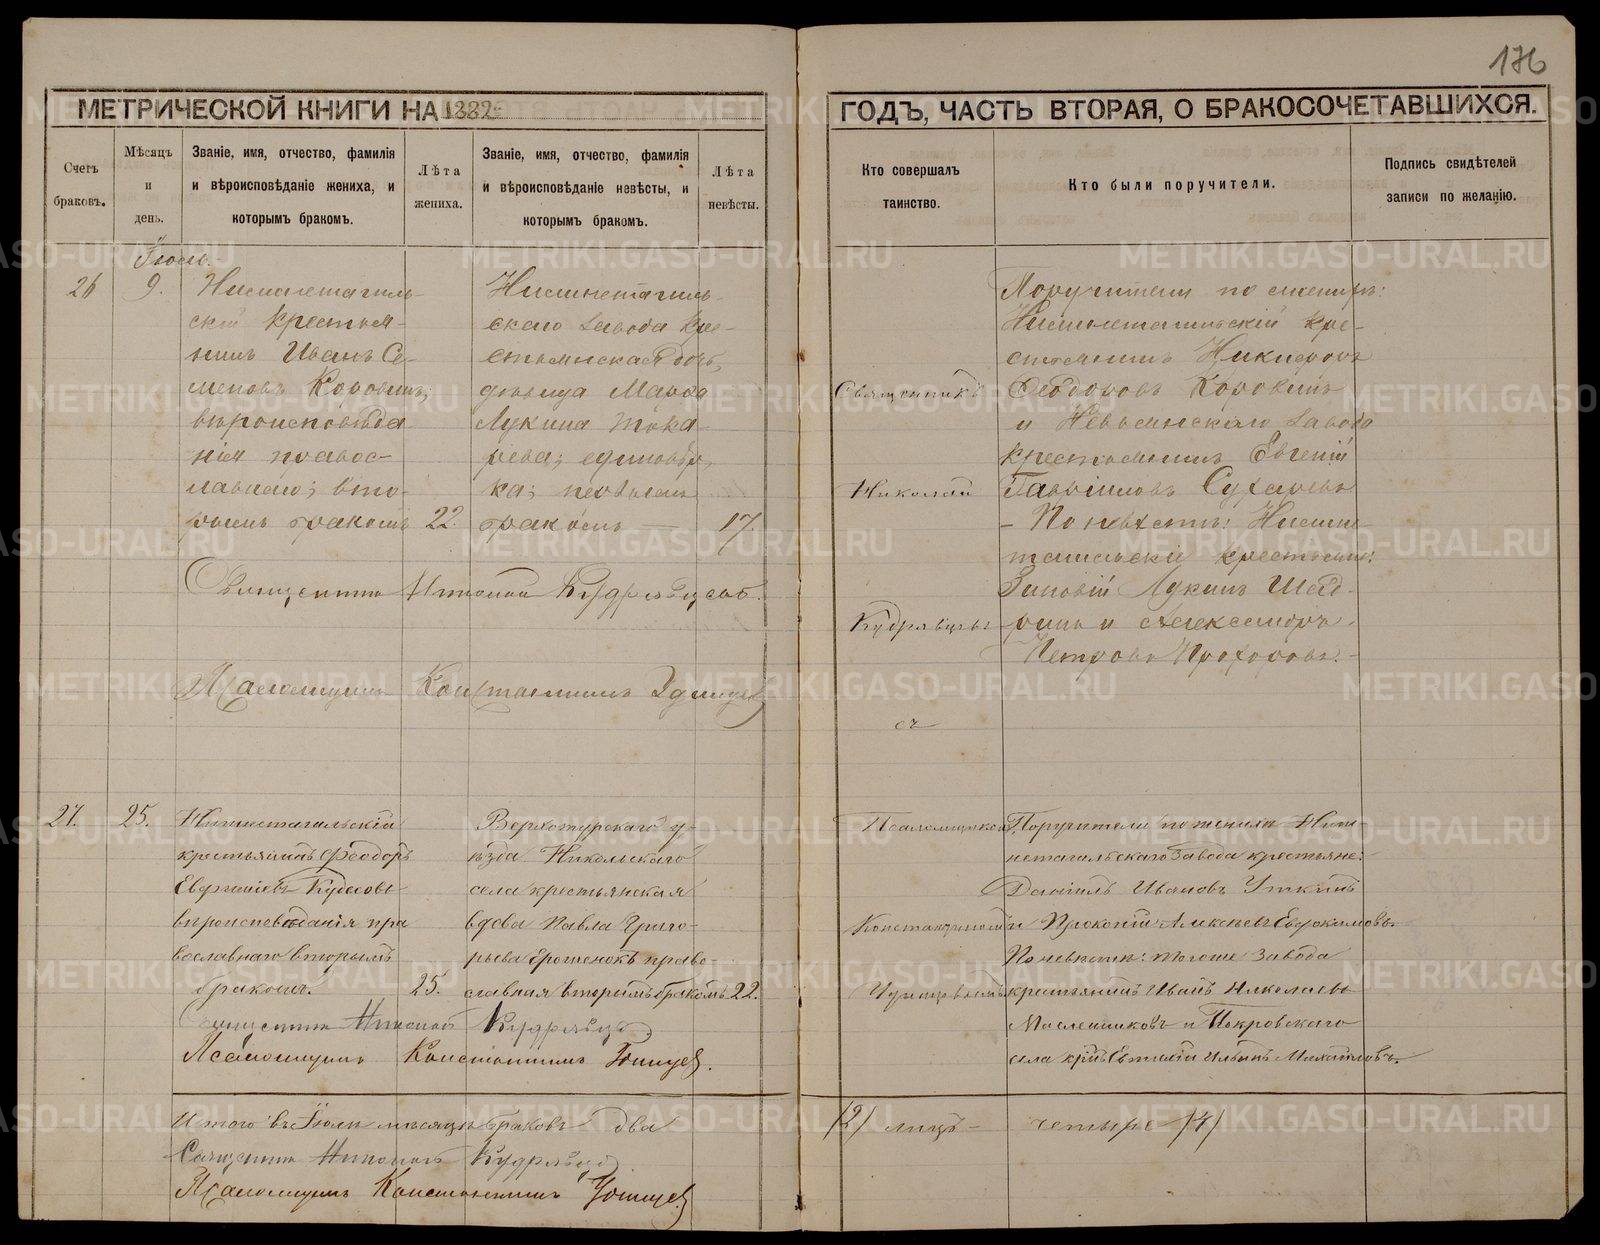 176
МЕТРИЧЕСКОЙ КНИГИ НА 1882
ГОДЪ, ЧАСТЬ ВТОРАЯ, О БРАКОСОЧЕТАВШИХСЯ.
Счетъ браковъ.
Мѣсяцъ и день.
Званіе, имя, отчество, фамилія
и вѣроисповѣданіе жениха, и
которымъ бракомъ.
Лѣта
жениха.
Званіе, имя, отчество, фамилія
и вѣроисповѣданіе невѣсты, и
которымъ бракомъ.
Лѣта
невѣсты.
Кто совершалъ
таинство.
Кто были поручители.
Подпись свидѣтелей
записи по желанію.
Іюль.
26
9.
Нижнетагиль-
скій крестья-
нинъ Иванъ Се-
меновъ Коровинъ;
вѣроисповѣда-
нія правос-
лавнаго; вто-
рымъ бракомъ
22.
Нижнетагиль-
скаго завода кре-
стьянская дочь,
дѣвица Марѳа
Лукина Тока-
рева; единовѣр-
ка; первымъ
бракомъ
17.
Священникъ
Николай
Кудрявцевъ
Поручители по женихѣ:
Нижнетагильскій кре-
стьянинъ Никифоръ
Ѳеодоровъ Коровинъ
и Невьянскаго завода
крестьянинъ Евгеній
Гавриловъ Сухаревъ
- По невѣстѣ: Нижне-
тагильскіе крестьяне:
Зиновій Лукинъ
и Александръ
Петровъ Прохоровъ.
Священникъ Николай Кудрявцевъ.
Псаломщикъ Константинъ
27.
25.
Нижнетагильскій
крестьянинъ Ѳеодоръ
вѣроисповѣданія пра-
вославнаго вторымъ
бракомъ.
25.
Верхотурскаго у-
ѣзда Никольскаго
села крестьянская
вдова Павла Григо-
рьева Ерошенокъ право-
славная вторымъ бракомъ
22.
Поручители по женихѣ Ниж-
нетагильскаго завода крестьяне:
Даніилъ Ивановъ Уткинъ
и Прокопій Алексѣевъ Евдокимовъ.
По невѣстѣ: тогоже завода
крестьянинъ Иванъ Николаевъ
Масленниковъ и Покровскаго
села
Священникъ Николай Кудрявцевъ.
Псаломщикъ Константинъ
Итого въ Іюлѣ мѣсяцѣ браковъ два
(2) лицъ - четыре (4)
Священникъ Николай Кудрявцевъ.
Псаломщикъ Константинъ
METRIKI.GASO-URAL.RU